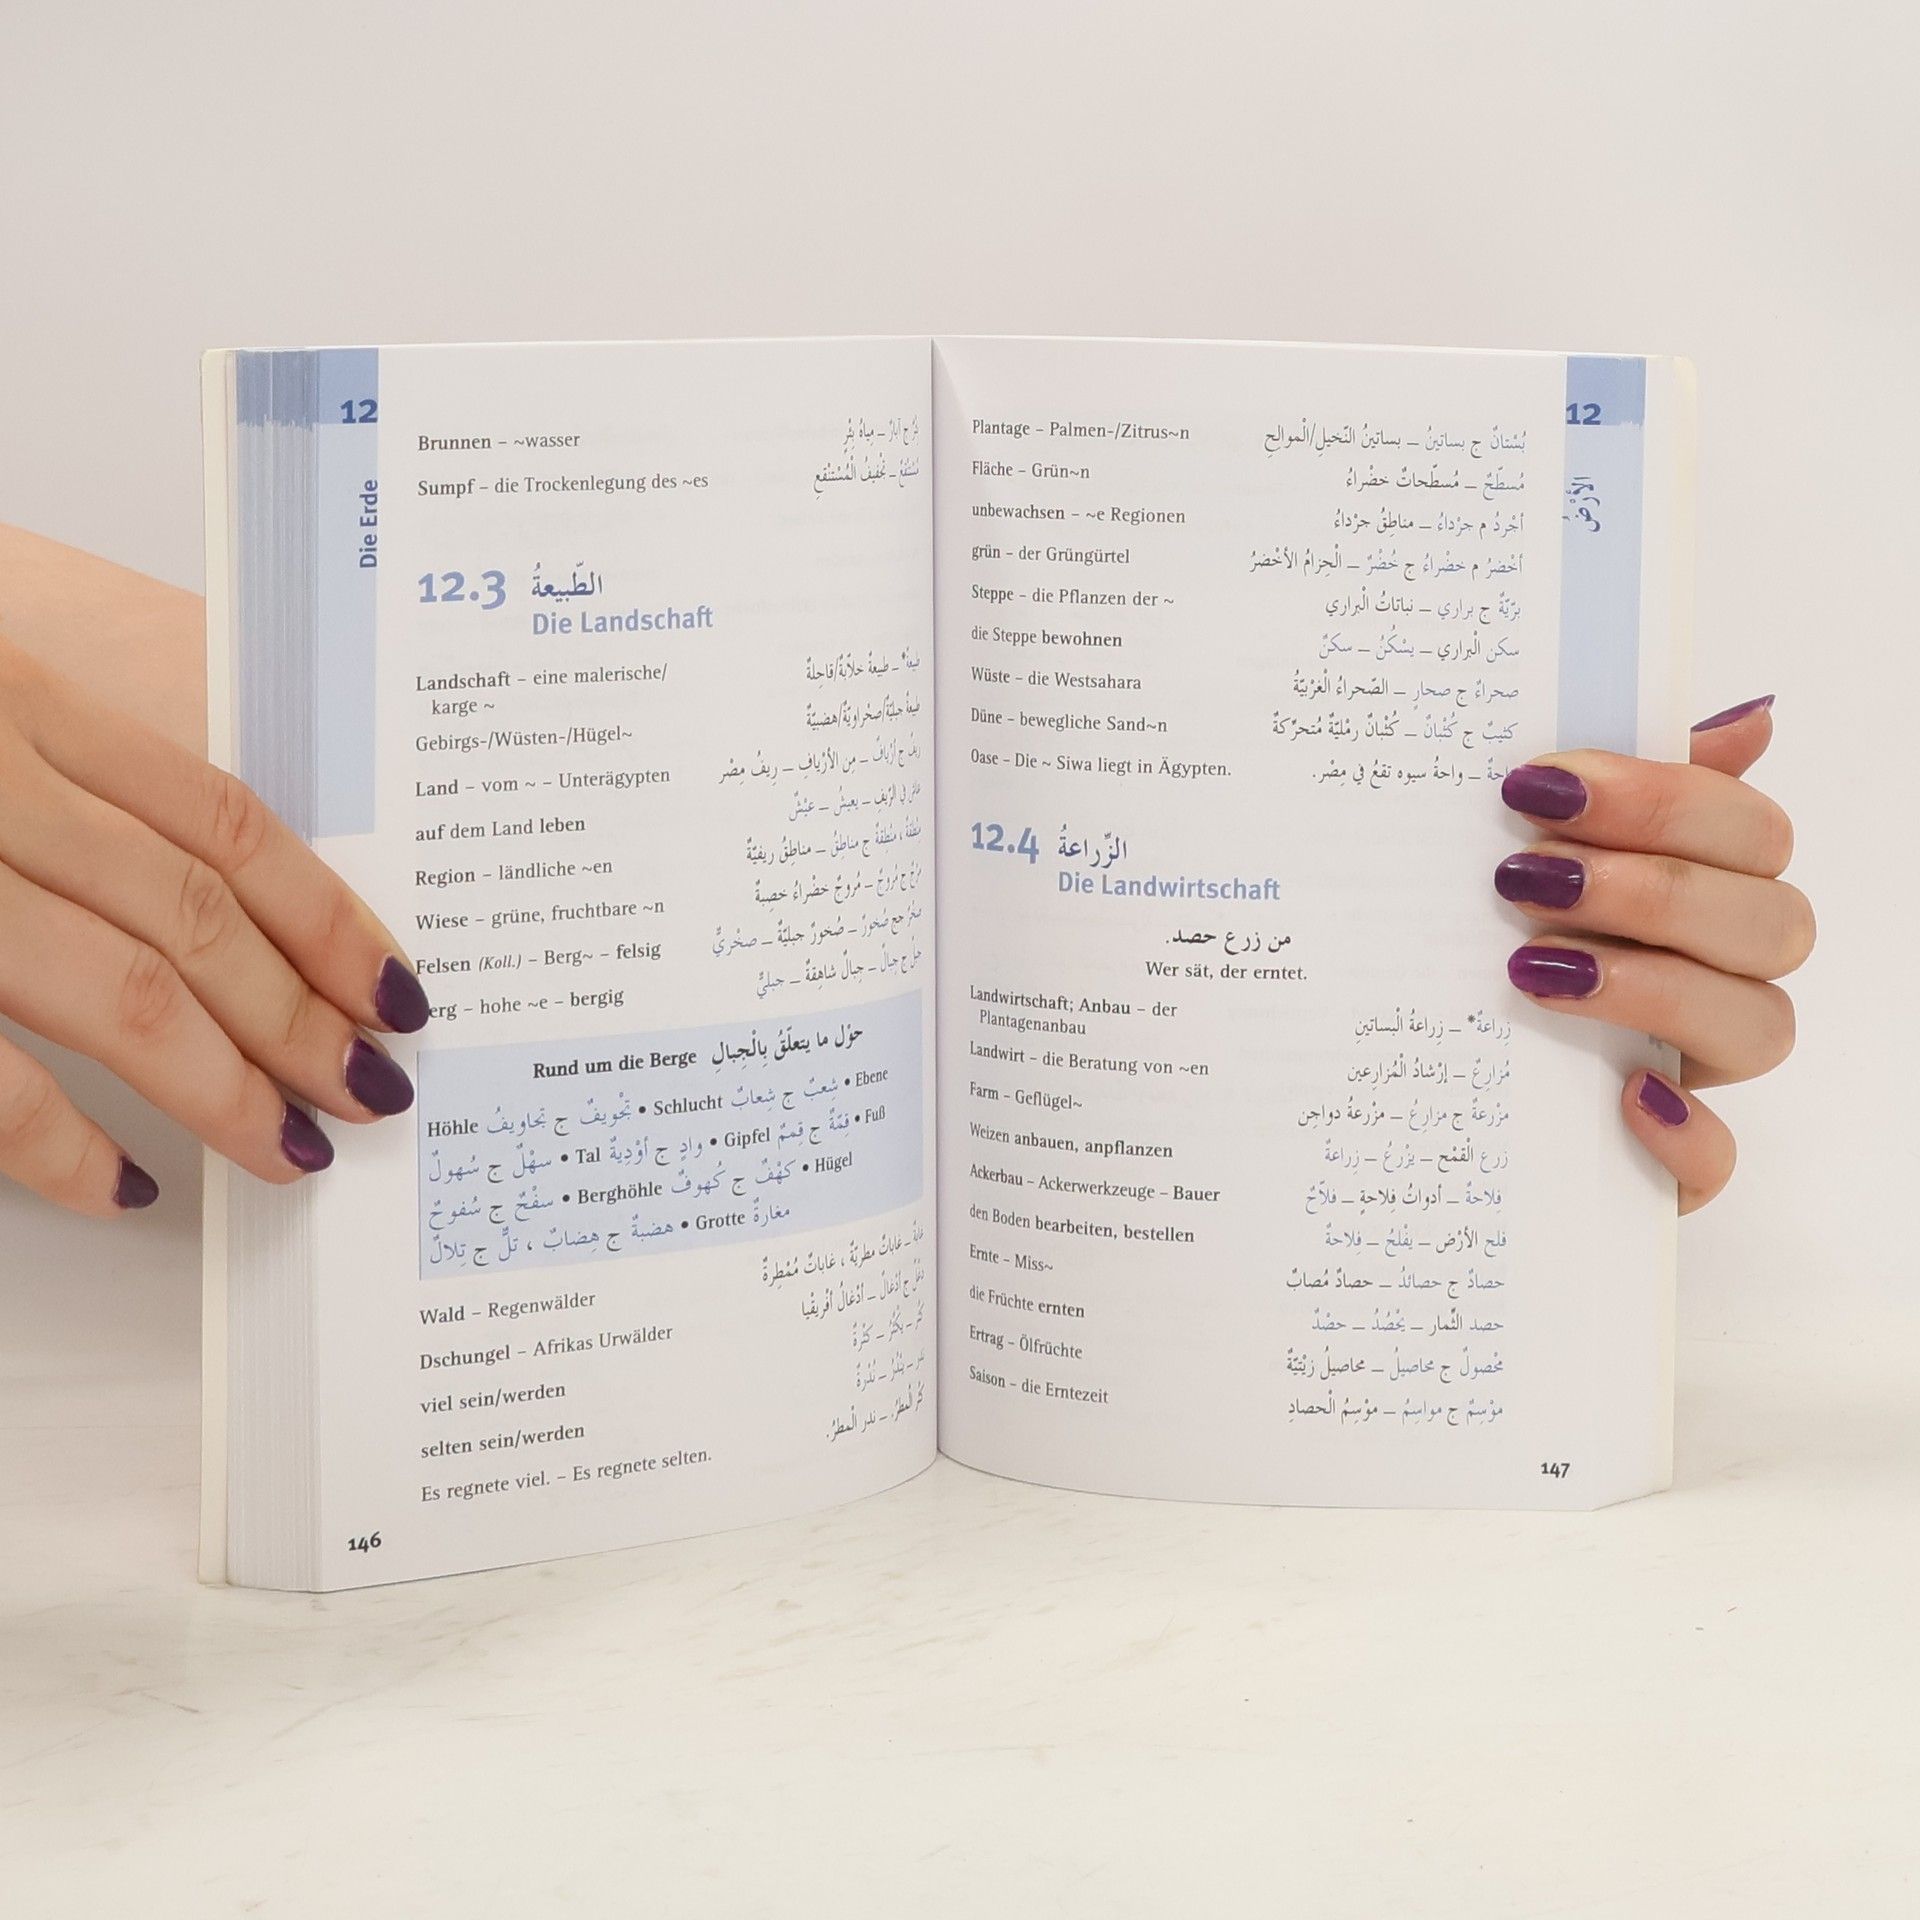 12
Die Erde
Brunnen – ~wasser بِئْرٌ ج آبارٌ – مِياهُ بِئْرٍ
Sumpf – die Trockenlegung des ~es مُسْتَنْقعٌ – تَجْفيفُ الْمُسْتنْقعِ
12.3 الطّبيعةُ
Die Landschaft
Landschaft – eine malerische/ طبيعةٌ* – طبيعةٌ خلاّبةٌ/قاحِلةٌ
karge ~
Gebirgs-/Wüsten-/Hügel~ طبيعةٌ جبليّةٌ/صحْراويّةٌ/هضبيّةٌ
Land – vom ~ – Unterägypten ريفٌ ج أرْيافٌ – مِن الأرْيافِ – رِيفُ مِصْر
auf dem Land leben عاش في الرّيفِ – يعيشُ – عيْشٌ
Region – ländliche ~en مِنْطقةٌ ، منْطقةٌ ج مناطِقُ – مناطِقُ ريفيّةٌ
Wiese – grüne, fruchtbare ~n مرْجٌ ج مُروجٌ – مُروجٌ خضْراءُ خصِبةٌ
Felsen (Koll.) – Berg~ – felsig صخْرٌ جج صُخورٌ – صُخورٌ جبليّةٌ – صخْريٌّ
erg – hohe ~e – bergig جبلٌ ج جِبالٌ – جِبالٌ شاهِقةٌ – جبليٌّ
Rund um die Berge حوْل ما يتعلّقُ بِالْجِبالِ
Höhle تجْويفٌ ج تجاويفُ • Schlucht شِعبٌ ج شِعابٌ • Ebene
سهْلٌ ج سُهولٌ • Tal وادٍ ج أوْدِيةٌ • Gipfel قِمّةٌ ج قِممٌ • Fuß
سفْحٌ ج سُفوحٌ • Berghöhle كهْفٌ ج كُهوفٌ • Hügel
تلٌّ ج تِلالٌ ، هضبةٌ ج هِضابٌ • Grotte مغارةٌ
Wald – Regenwälder غابةٌ – غاباتٌ مطريّةٌ ، غاباتٌ مُمْطِرةٌ
Dschungel – Afrikas Urwälder دغلٌ ج أدْغالٌ – أدْغالُ أفْريقْيا
viel sein/werden كثُر – يكْثُرُ – كثْرةٌ
selten sein/werden ندر – يندُرُ – نُدْرةٌ
Es regnete viel. – Es regnete selten. كثُر الْمطرُ. – ندر الْمطرُ.
146
12
الأرْضُ
Plantage – Palmen-/Zitrus~n بُسْتانٌ ج بساتينُ – بساتينُ النّخيلِ/الْموالِحِ
Fläche – Grün~n مُسطّحٌ – مُسطّحاتٌ خضْراءُ
unbewachsen – ~e Regionen أجْردُ م جرْداءُ – مناطِقُ جرْداءُ
grün – der Grüngürtel أخْضرُ م خضْراءُ ج خُضْرٌ – الْحِزامُ الأخْضرُ
Steppe – die Pflanzen der ~ برّيّةٌ ج براري – نباتاتُ الْبراري
die Steppe bewohnen سكن الْبراري – يسْكُنُ – سكنٌ
Wüste – die Westsahara صحراءُ ج صحارٍ – الصّحراءُ الْغرْبيّةُ
Düne – bewegliche Sand~n كثيبٌ ج كُثْبانٌ – كُثْبانٌ رمْليّةٌ مُتحرِّكةٌ
Oase – Die ~ Siwa liegt in Ägypten. احةٌ – واحةُ سيوه تقعُ في مِصْر.
12.4 الزِّراعةُ
Die Landwirtschaft
من زرع حصد.
Wer sät, der erntet.
Landwirtschaft; Anbau – der زِراعةٌ* – زِراعةُ الْبساتينِ
Plantagenanbau
Landwirt – die Beratung von ~en مُزارِعٌ – إرْشادُ الْمُزارِعين
Farm – Geflügel~ مزْرعةٌ ج مزارِعُ – مزْرعةُ دواجِن
Weizen anbauen, anpflanzen زرع الْقمْح – يزْرعُ – زِراعةٌ
Ackerbau – Ackerwerkzeuge – Bauer فِلاحةٌ – أدواتُ فِلاحةٍ – فلاّحٌ
den Boden bearbeiten, bestellen فلح الأرْض – يفْلحُ – فِلاحةٌ
Ernte – Miss~ حصادٌ ج حصائدُ – حصادٌ مُصابٌ
die Früchte ernten حصد الثِّمار – يحْصُدُ – حصْدٌ
Ertrag – Ölfrüchte محْصولٌ ج محاصيلُ – محاصيلُ زيْتيّةٌ
Saison – die Erntezeit موْسِمٌ ج مواسِمُ – موْسِمُ الْحصادِ
147